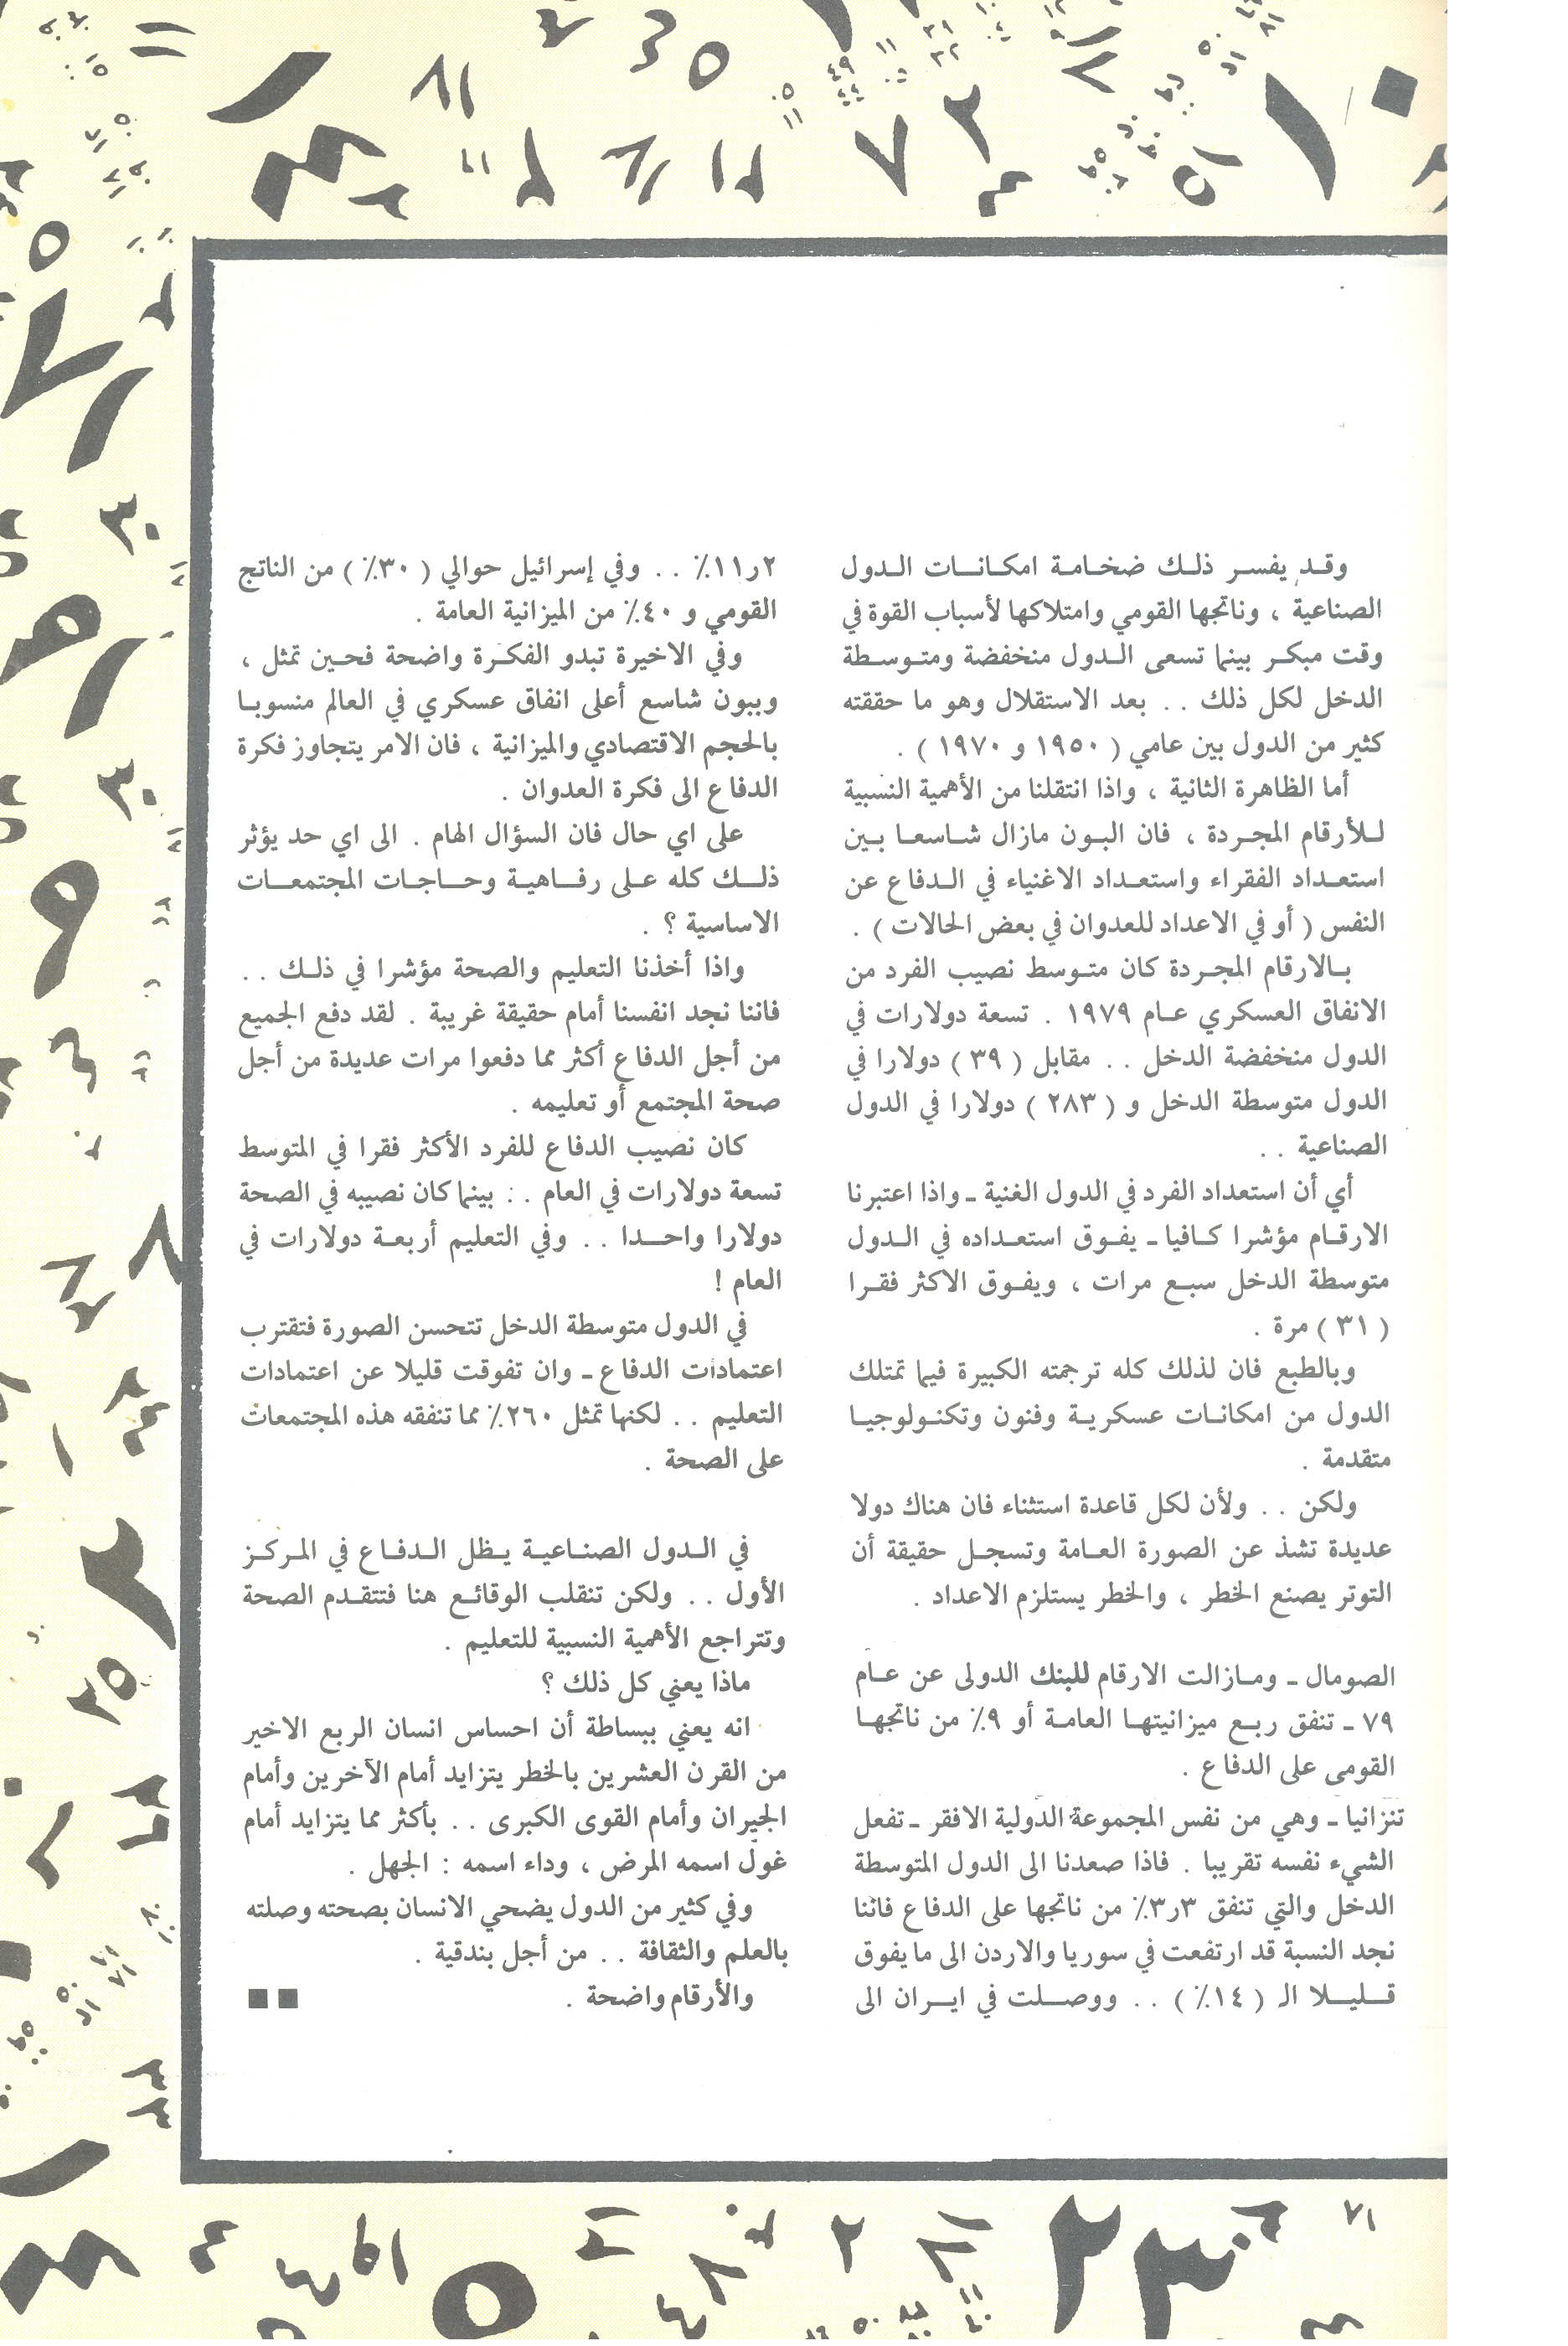 وقد يفسر ذلك ضخامة امكانات الدول
الصناعية ، وناتجها القومي وامتلاكها لأسباب القوة في
وقت مبكر بينما تسعى الدول منخفضة ومتوسطة
الدخل لكل ذلك . . بعد الاستقلال وهو ما حققته
كثير من الدول بين عامي ( ١٩٥٠ و ١٩٧٠ ) .
أما الظاهرة الثانية ، واذا انتقلنا من الأهمية النسبية
للأرقام المجردة ، فان البون مازال شاسعا بين
استعداد الفقراء واستعداد الاغنياء في الدفاع عن
النفس ( أو في الاعداد للعدوان في بعض الحالات ) .
بالارقام المجردة كان متوسط نصيب الفرد من
الانفاق العسكري عام ١٩٧٩ . تسعة دولارات في
الدول منخفضة الدخل . . مقابل ( ٣٩ ) دولارا في
الدول متوسطة الدخل و ( ٢٨٣ ) دولارا في الدول
الصناعية . .
أي أن استعداد الفرد في الدول الغنية ـ واذا اعتبرنا
الارقام مؤشرا كافيا ـ يفوق استعداده في الدول
متوسطة الدخل سبع مرات ، ويفوق الاكثر فقرا
( ٣١ ) مرة .
وبالطبع فان لذلك كله ترجمته الكبيرة فيما تمتلك
الدول من امكانات عسكرية وفنون وتكنولوجيا
متقدمة .
ولكن . . ولأن لكل قاعدة استثناء فان هناك دولا
عديدة تشذ عن الصورة العامة وتسجل حقيقة أن
التوتر يصنع الخطر ، والخطر يستلزم الاعداد .
الصومال ـ ومازالت الارقام للبنك الدولى عن عام
٧٩ ـ تنفق ربع ميزانيتها العامة أو ٩٪ من ناتجها
القومى على الدفاع .
تنزانيا ـ وهي من نفس المجموعة الدولية الافقر ـ تفعل
الشيء نفسه تقريبا . فاذا صعدنا الى الدول المتوسطة
الدخل والتي تنفق ٣ر٣٪ من ناتجها على الدفاع فاننا
نجد النسبة قد ارتفعت في سوريا والاردن الى ما يفوق
قليلا الـ ( ١٤٪ ) . . ووصلت في ايران الى
٢ر١١٪ . . وفي إسرائيل حوالي ( ٣٠٪ ) من الناتج
القومي و ٤٠٪ من الميزانية العامة .
وفي الاخيرة تبدو الفكرة واضحة فحين تمثل ،
وببون شاسع أعلى انفاق عسكري في العالم منسوبا
بالحجم الاقتصادي والميزانية ، فان الامر يتجاوز فكرة
الدفاع الى فكرة العدوان .
على اي حال فان السؤال الهام . الى اي حد يؤثر
ذلك كله على رفاهية وحاجات المجتمعات
الاساسية ؟ .
واذا أخذنا التعليم والصحة مؤشرا في ذلك . .
فاننا نجد انفسنا أمام حقيقة غريبة . لقد دفع الجميع
من أجل الدفاع أكثر مما دفعوا مرات عديدة من أجل
صحة المجتمع أو تعليمه .
كان نصيب الدفاع للفرد الأكثر فقرا في المتوسط
تسعة دولارات في العام . . بينما كان نصيبه في الصحة
دولارا واحدا . . وفي التعليم أربعة دولارات في
العام !
في الدول متوسطة الدخل تتحسن الصورة فتقترب
اعتمادات الدفاع ـ وان تفوقت قليلا عن اعتمادات
التعليم . . لكنها تمثل ٢٦٠٪ مما تنفقه هذه المجتمعات
على الصحة .
في الدول الصناعية يظل الدفاع في المركز
الأول . . ولكن تنقلب الوقائع هنا فتتقدم الصحة
وتتراجع الأهمية النسبية للتعليم .
ماذا يعني كل ذلك ؟
انه يعني ببساطة أن احساس انسان الربع الاخير
من القرن العشرين بالخطر يتزايد أمام الآخرين وأمام
الجيران وأمام القوى الكبرى . . بأكثر مما يتزايد أمام
غول اسمه المرض ، وداء اسمه : الجهل .
وفي كثير من الدول يضحي الانسان بصحته وصلته
بالعلم والثقافة . . من أجل بندقية .
والأرقام واضحة .
٧١